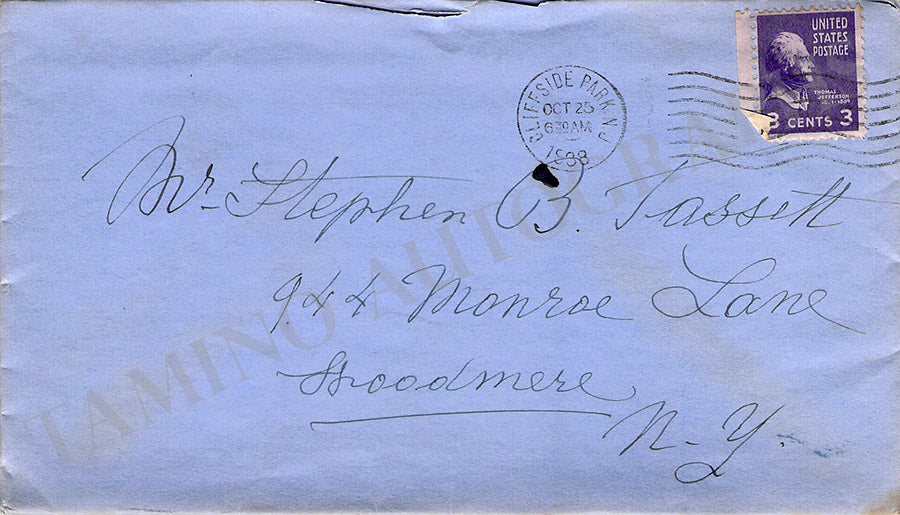 UNITED
STATES
POSTAGE
THOMAS
JEFFERSON
3 CENTS 3
CLIFFSIDE PARK N J
OCT 25
1938
Mr. Stephen B. Tassett
944 Monroe Lane
Woodmere
N-Y.
TAMINO AUTOGRA